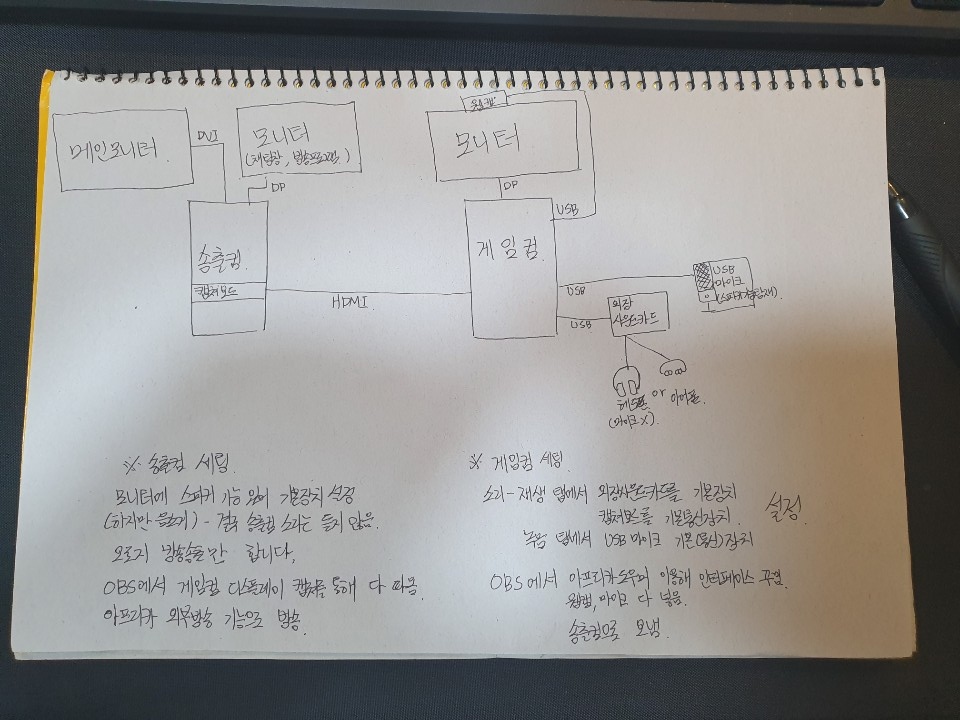 웹캠
메인모니터
DVI
모니터
(채팅창, 방송프로그램)
모니터
DP
DP
USB
송출컴
게임컴
캡쳐보드
HDMI
USB
USB
마이크
USB
외장
사운드카드
헤드폰 or 이어폰.
(마이크X)
※ 송출컴 세팅.
모니터에 스피커 기능 있어 기본장치 설정
(하지만 음소거) - 결국 송출컴 소리는 듣지 않음.
오로지 방송송출만 합니다.
OBS에서 게임컴 디스플레이 캡쳐를 통해 다 따옴.
아프리카 외부방송 기능으로 방송.
※ 게임컴 세팅
소리-재생 탭에서 외장사운드카드를 기본장치
캡쳐보드를 기본통신장치. 설정.
녹음 탭에서 USB마이크 기본(통신)장치
OBS에서 아프리카도우미 이용해 인터페이스 꾸밈.
웹캠, 마이크 다 넣음.
송출컴으로 보냄.